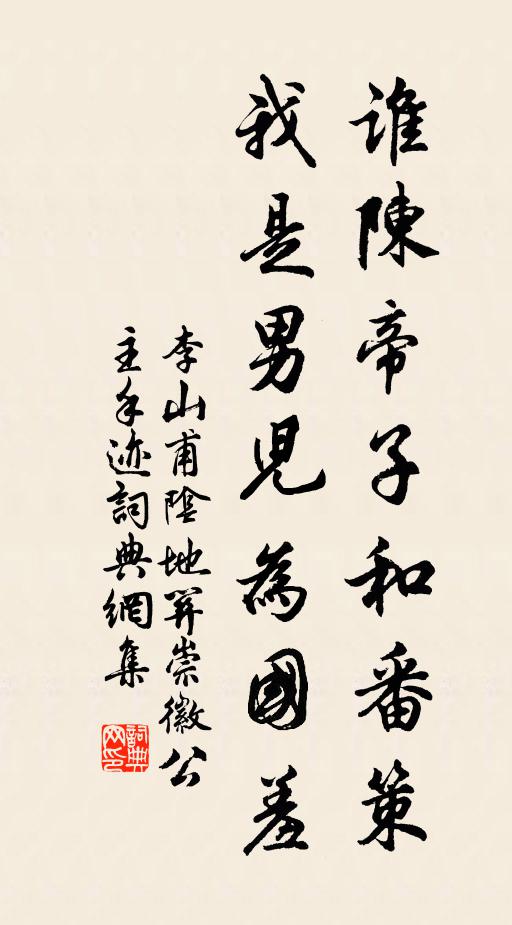 誰陳帝子和番策
我是男兒為國羞
李山甫陰地关崇徽公
主手迹詞典網集
詞典網印